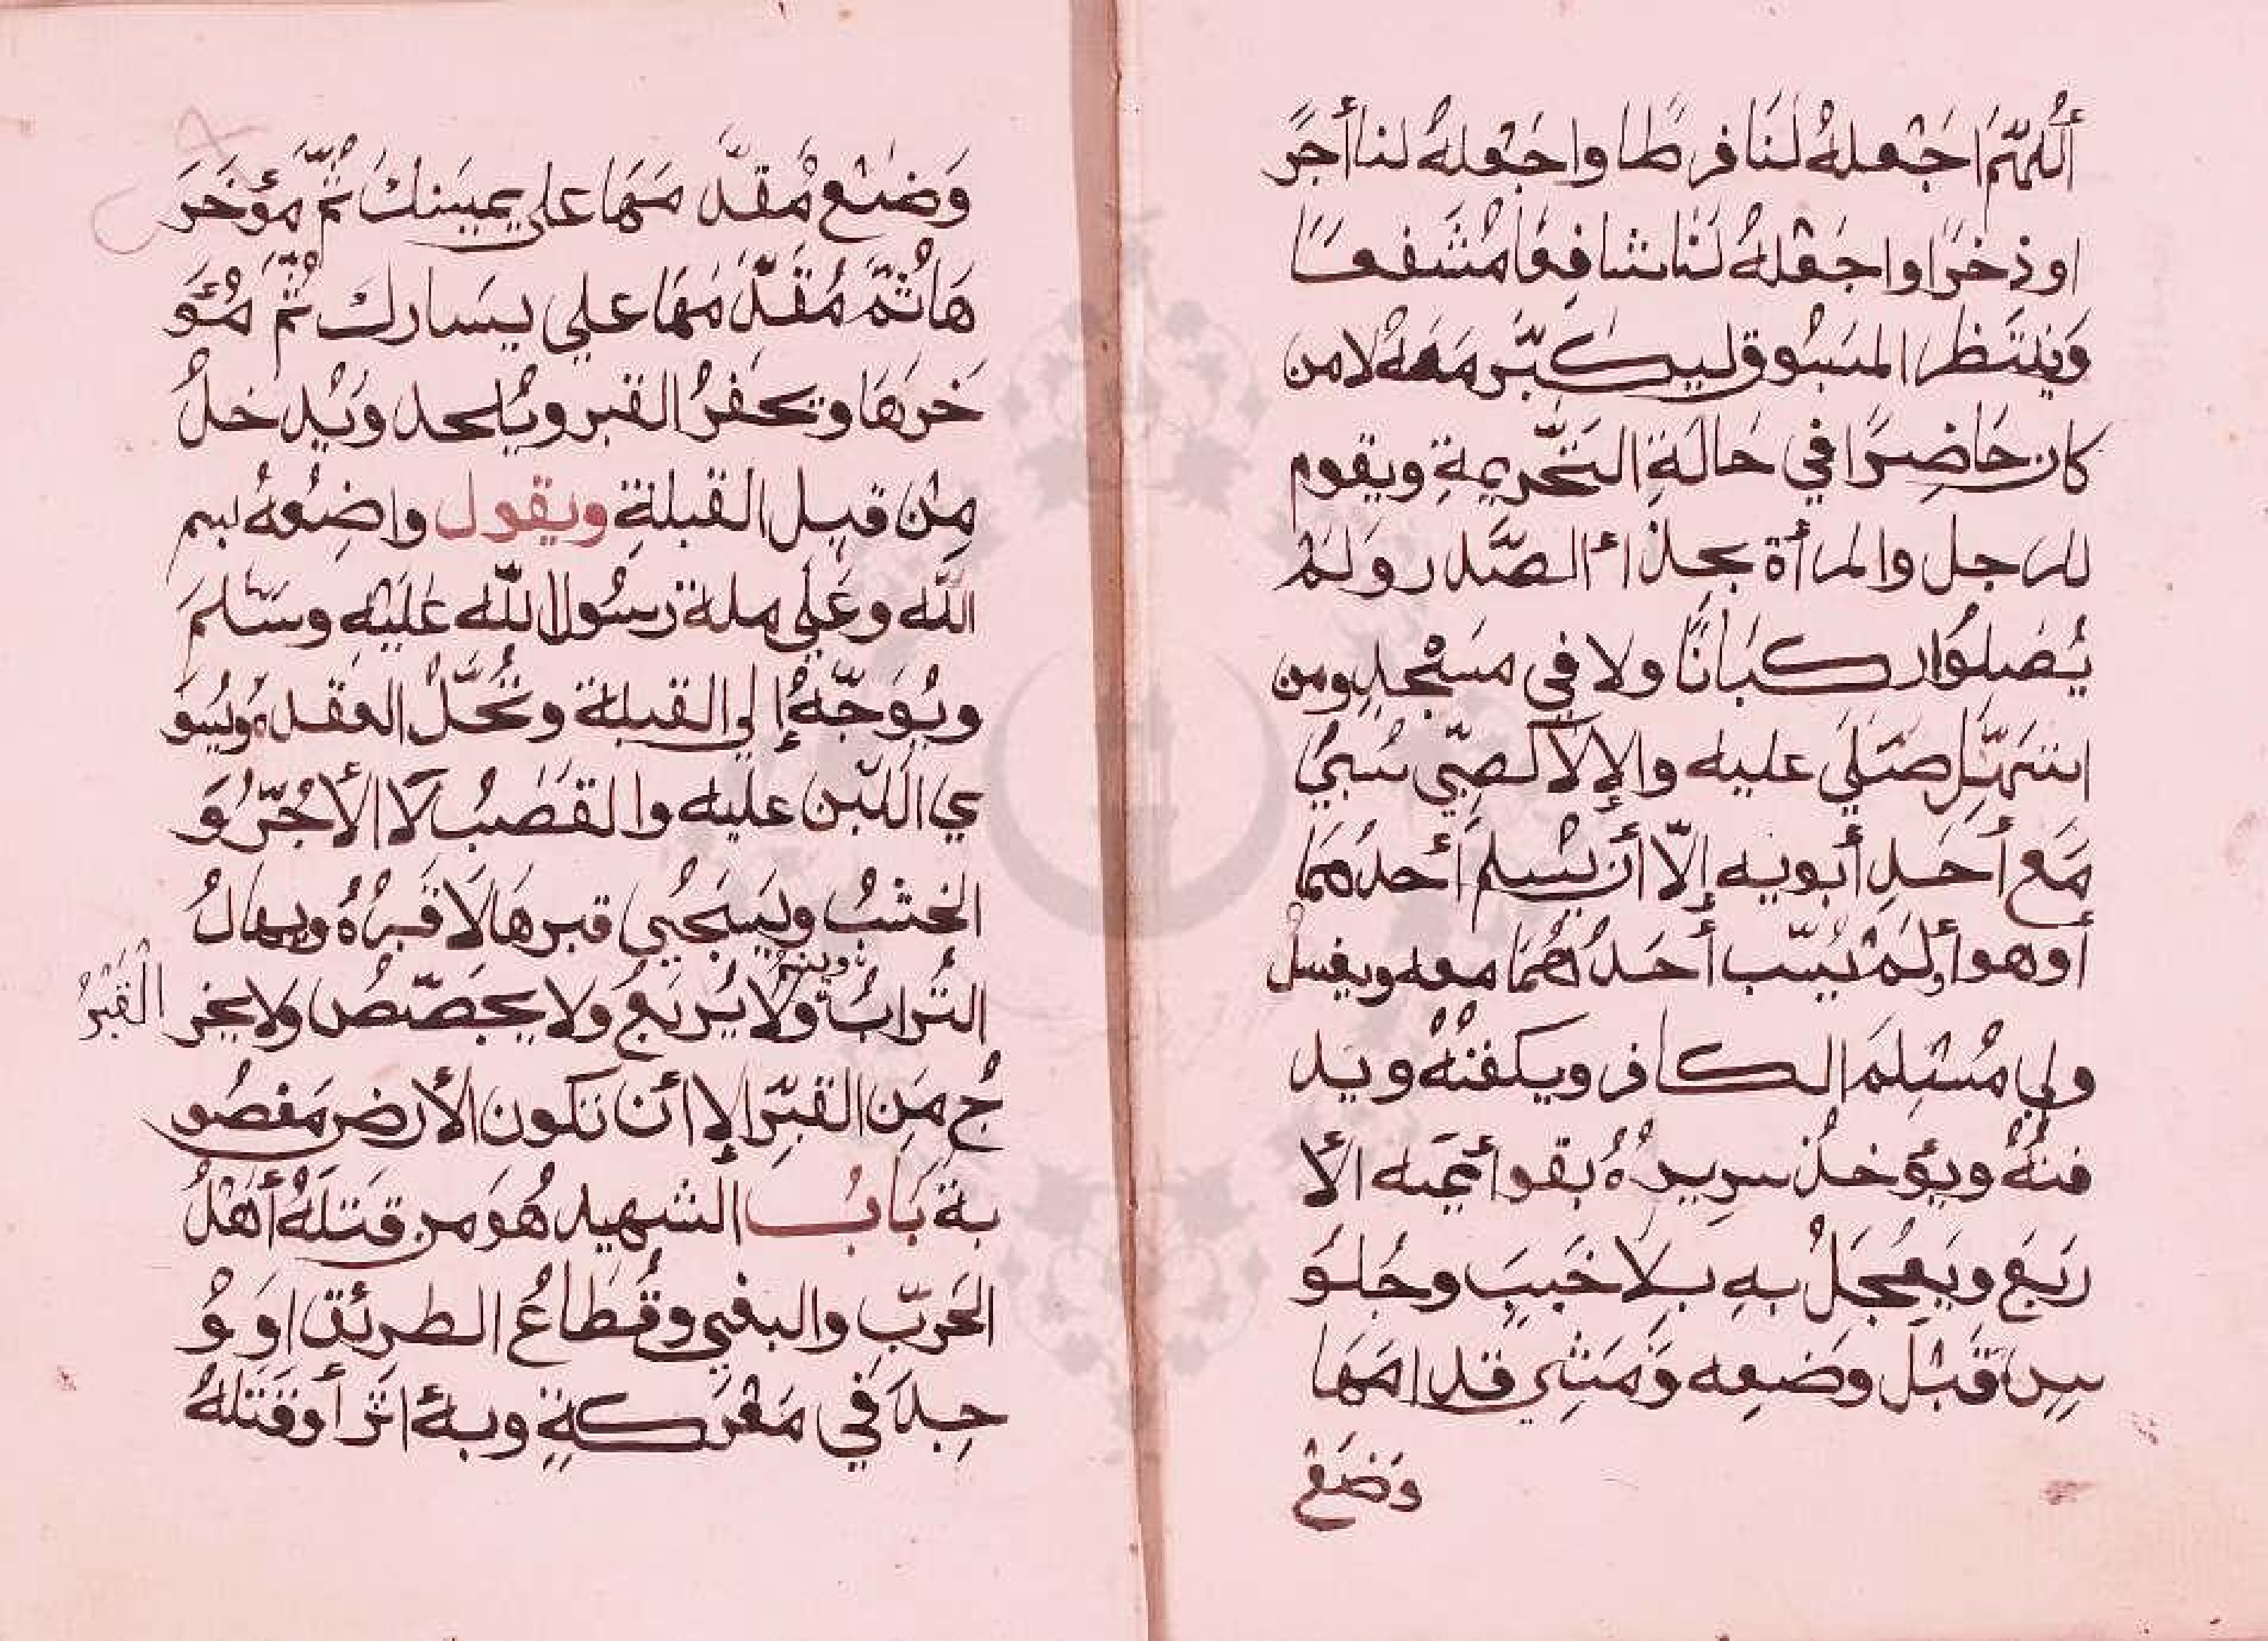 أللهمّ اجْعلهُ لَنَا فرطًا واجْعلهُ لنا أجرً
اوذخرًا واجعْلهُ لَنَا شافِعًا مُشَفعًا
وَيَنتَظر المسبُوق ليكبّر مَعَهُ لا من
كان حَاضِرًا في حَالَةِ التَّحريمةِ ويقوم
للرجل والمرأة بحذاء الصَّدر ولَمْ
يُصَلوُا ركبَانًا ولا في مسْجدٍ ومن
استهّل صَلّي عليه وإلّا لا كصبّي سُبيَ
مَع أحَدِ أبويه إلّا أن يُسْلم أحدُهمَا
أوهو أولَمْ يُسْب أحَدُهُمَا معه ويغسلُ
ولي مُسْلِمَ الكافر ويكفنُهُ ويد
فنُهُ ويؤخذُ سريرُهُ بقوائمِه الأ
ربَعِ ويُعْجَلُ بهِ بِلَا خَبَبٍ وجُلُو
سٍ قَبْلَ وضعِه وَمَشِي قدامَهَا
وَضَعْ
وَضَعْ مُقدّمَهَا علي يمينكَ ثُمَّ مؤخَرَ
هَا ثُمَّ مُقَدّمَهَا علي يسَاركَ ثُمَّ مُؤ
خَرَهَا ويحفَرُ القبر ويُلحد ويُدخلُ
مِنْ قبل القبلةِ ويقول واضِعُهُ بسم
الله وعَلَي ملة رسُول الله عَليْهِ وسَلّمَ
ويُوَجّهُ إلي القبلة وتُحَلّ العقدة ويُسَو
ي اللّبن عليه والقَصَبُ لَا الأجُرّ وَ
الخشبُ ويُسَجّي قبرهَا لَا قَبرُهُ ويهالُ
التُرابُ ويسنمُ ولَا يُربَعُ ولا يجَصّصُ ولا يخر القَبْرُ
جُ مَن القبّرِ إلا أن تكون الأرض مَغصُو
بة بَابُ الشهيد هُوَ من قتلَهُ أهْلُ
الحَربّ والبغي وقُطَاعُ الطريق اوَ وُ
جِدَ في مَعْرَكةٍ وبهٔ اثَر أوقَتلَهُ